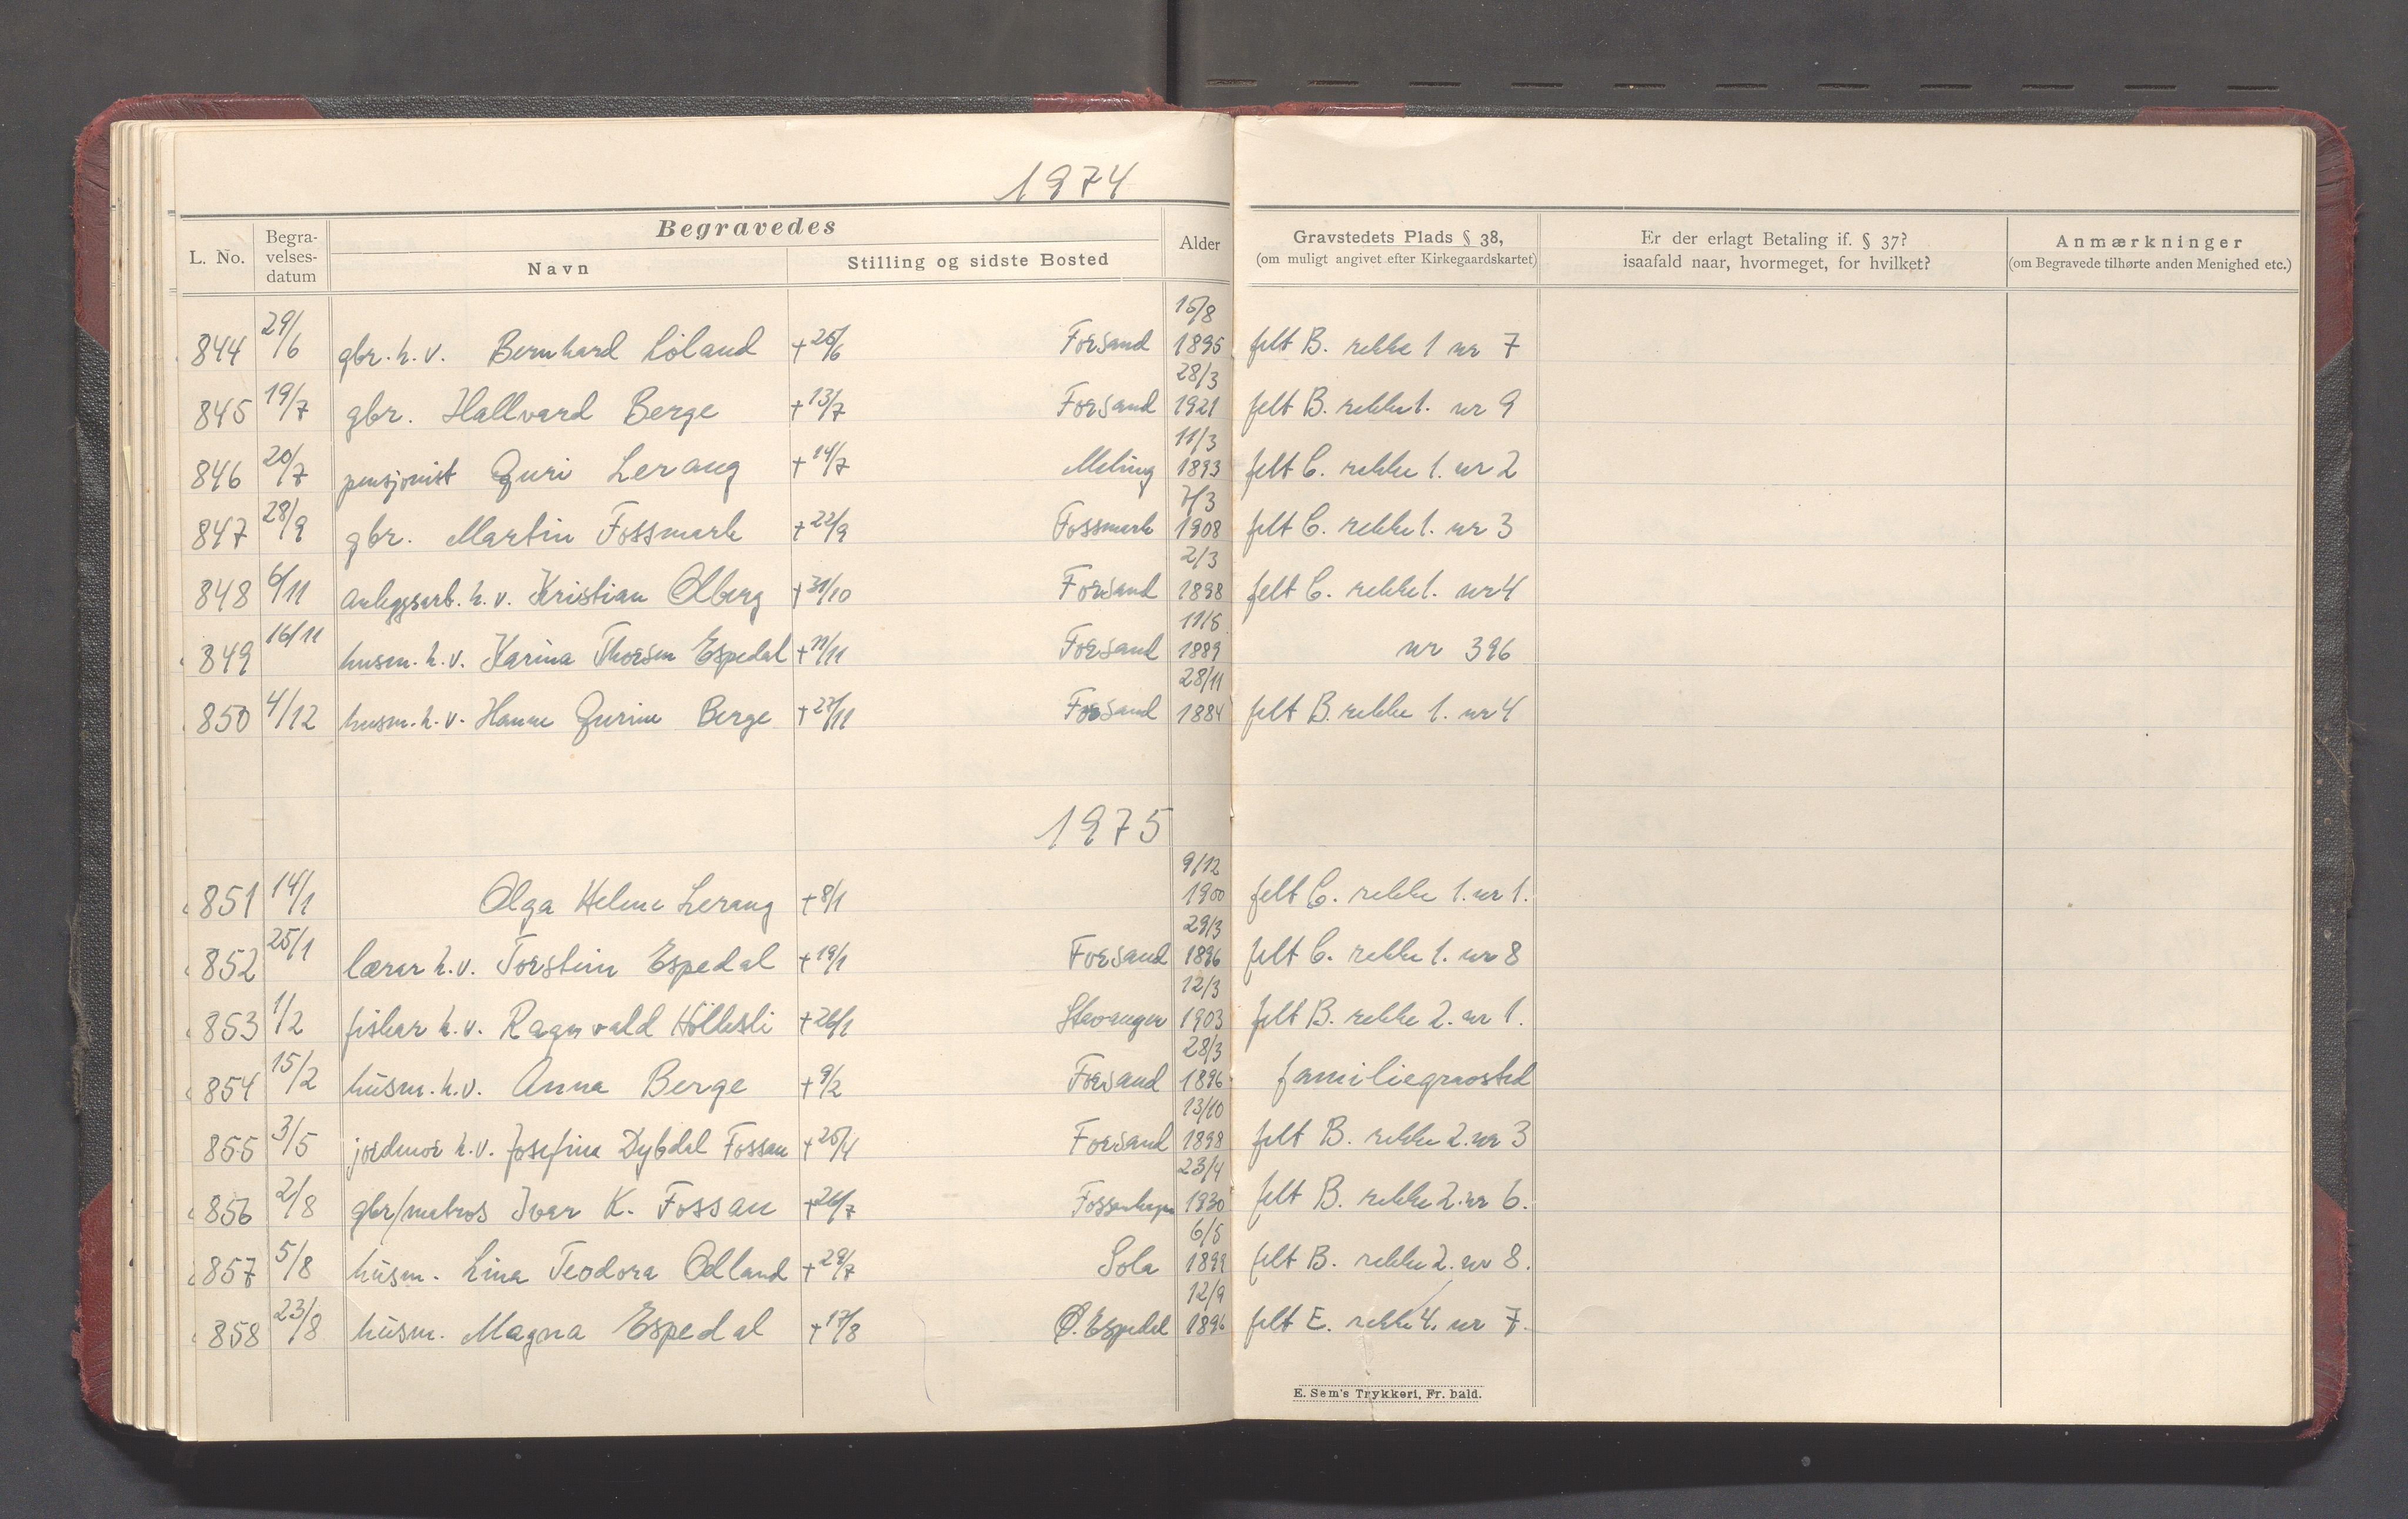 1974
L. No.
Begra-
velses-
datum
Begravedes
Navn
Stilling og sidste Bosted
Alder
Gravstedets Plads § 38,
(om muligt angivet efter Kirkegaardskartet)
Er der erlagt Betaling if. § 37?
isaafald naar, hvormeget, for hvilket?
Anmærkninger
(om Begravede tilhørte anden Menighed etc.)
844 29/6 gbr. h.v. Bernhard Löland +26/6 Forsand 15/8 1895 felt B. rekke 1 nr 7
845 19/7 gbr. Hallvard Berge +13/7 Forsand 28/3 1921 felt B. rekke 1. nr 9
846 20/7 pensjonist Guri Lerang +14/7 Meling 11/3 1893 felt C. rekke 1. nr 2
847 28/9 gbr. Martin Fossmark +22/9 Fossmark 7/3 1908 felt C. rekke 1. nr 3
848 6/11 anleggsarb. h.v. Kristian Olberg +31/10 Forsand 2/3 1898 felt C. rekke 1. nr 4
849 16/11 husm. h.v. Karina Thorsen Espedal +11/11 Forsand 11/8 1889 nr 396
850 4/12 husm. h.v. Hanne Gurine Berge +27/11 Forsand 28/11 1884 felt B. rekke 1. nr 4
1975
851 14/1 Olga Helene Lerang +8/1 9/12 1900 felt C. rekke 1. nr 1.
852 25/1 lærer h.v. Torstein Espedal +19/1 Forsand 29/3 1896 felt C. rekke 1. nr 8
853 1/2 fisker h.v. Ragnvald Höllesli +26/1 Stavanger 12/3 1903 felt B. rekke 2. nr 1.
854 15/2 husm. h.v. Anna Berge +9/2 Forsand 28/3 1896 familiegravsted
855 3/5 jordmor h.v. Josefine Dybdal Fossan +25/4 Forsand 13/10 1898 felt B. rekke 2. nr 3
856 2/8 gbr/matros Ivar K. Fossan +26/7 23/4 1930 felt B. rekke 2. nr 6.
857 5/8 husm. Lina Teodora Odland +29/7 Sola 6/5 1899 felt B. rekke 2. nr 8.
858 23/8 husm. Magna Espedal +17/8 Ø. Espedal 12/9 1896 felt E. rekke 4. nr 7.
E. Sem's Trykkeri, Fr. hald.